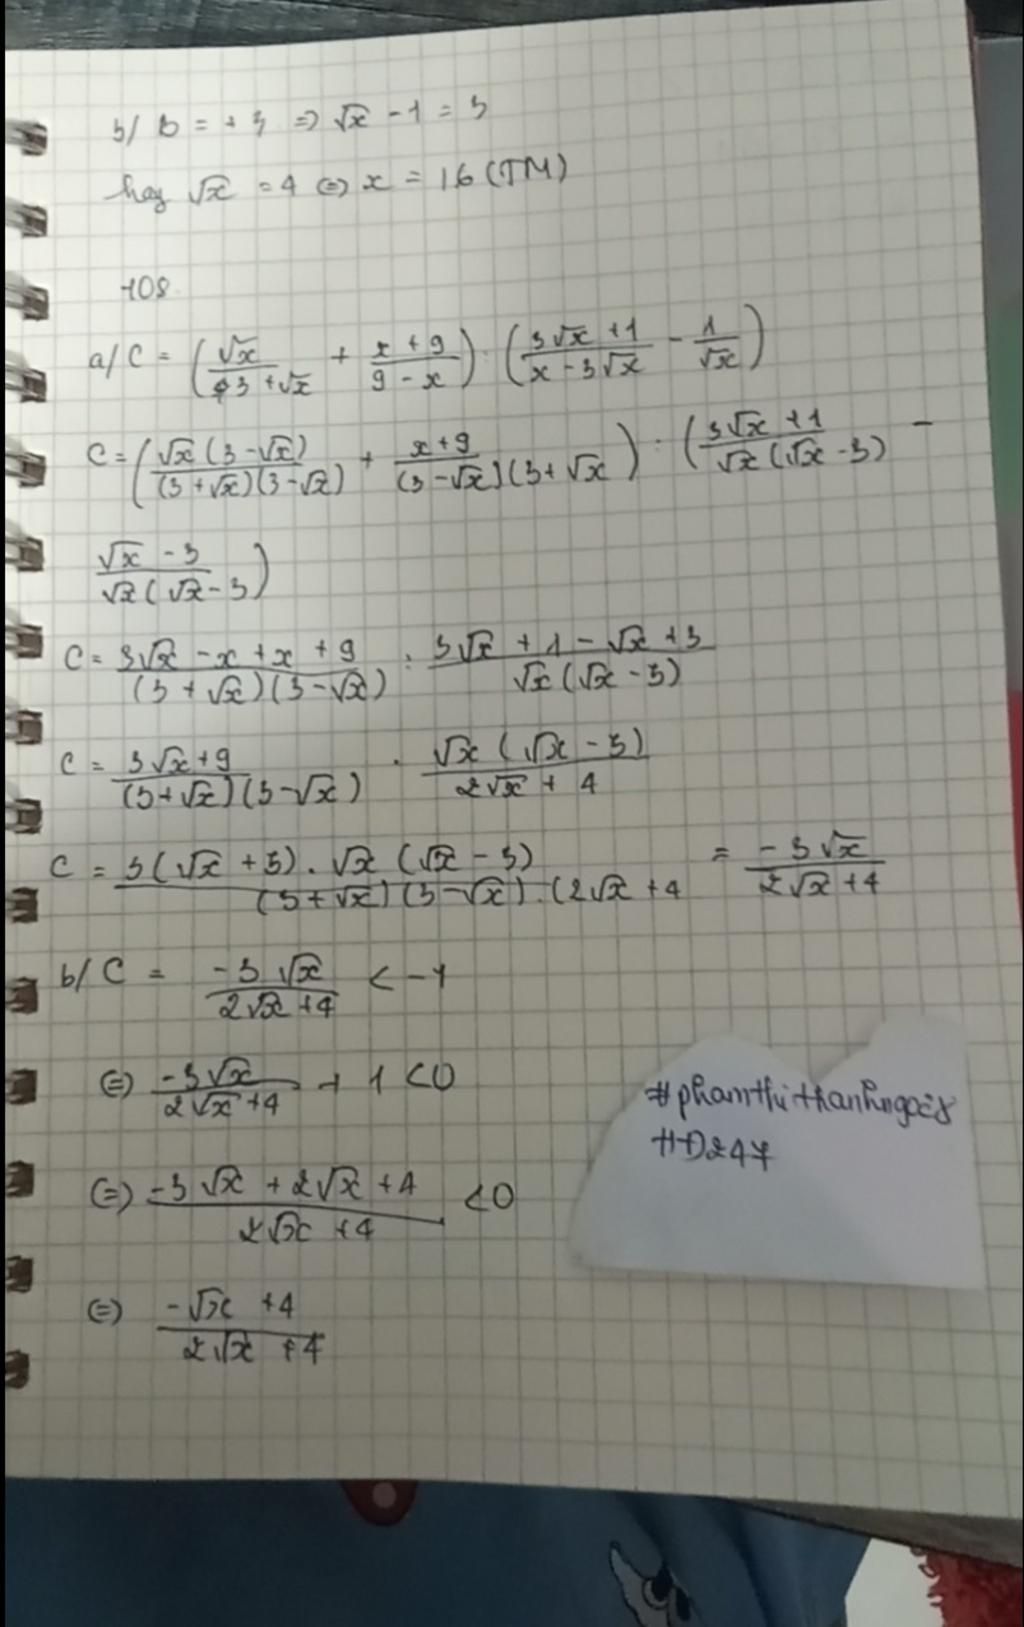 b/ B = + 3 => √x - 1 = 3
hay √x = 4 <=> x = 16 (TM)
108.
a/ C = (√x / (3 + √x) + (x + 9) / (9 - x)) : ((3√x + 1) / (x - 3√x) - 1 / √x)
C = (√x (3 - √x) / (3 + √x)(3 - √x) + (x + 9) / (3 - √x)(3 + √x)) : ((3√x + 1) / √x (√x - 3) -
(√x - 3) / √x (√x - 3))
C = (3√x - x + x + 9) / (3 + √x)(3 - √x) : (3√x + 1 - √x + 3) / √x (√x - 3)
C = (3√x + 9) / (3 + √x)(3 - √x) . √x (√x - 3) / (2√x + 4)
C = 3(√x + 3) . √x (√x - 3) / (3 + √x)(3 - √x) . (2√x + 4 = -3√x / (2√x + 4)
b/ C = -3√x / (2√x + 4) < -1
(=) -3√x / (2√x + 4) + 1 < 0
(=) (-3√x + 2√x + 4) / (2√x + 4) < 0
(=) (-√x + 4) / (2√x + 4)
HD247